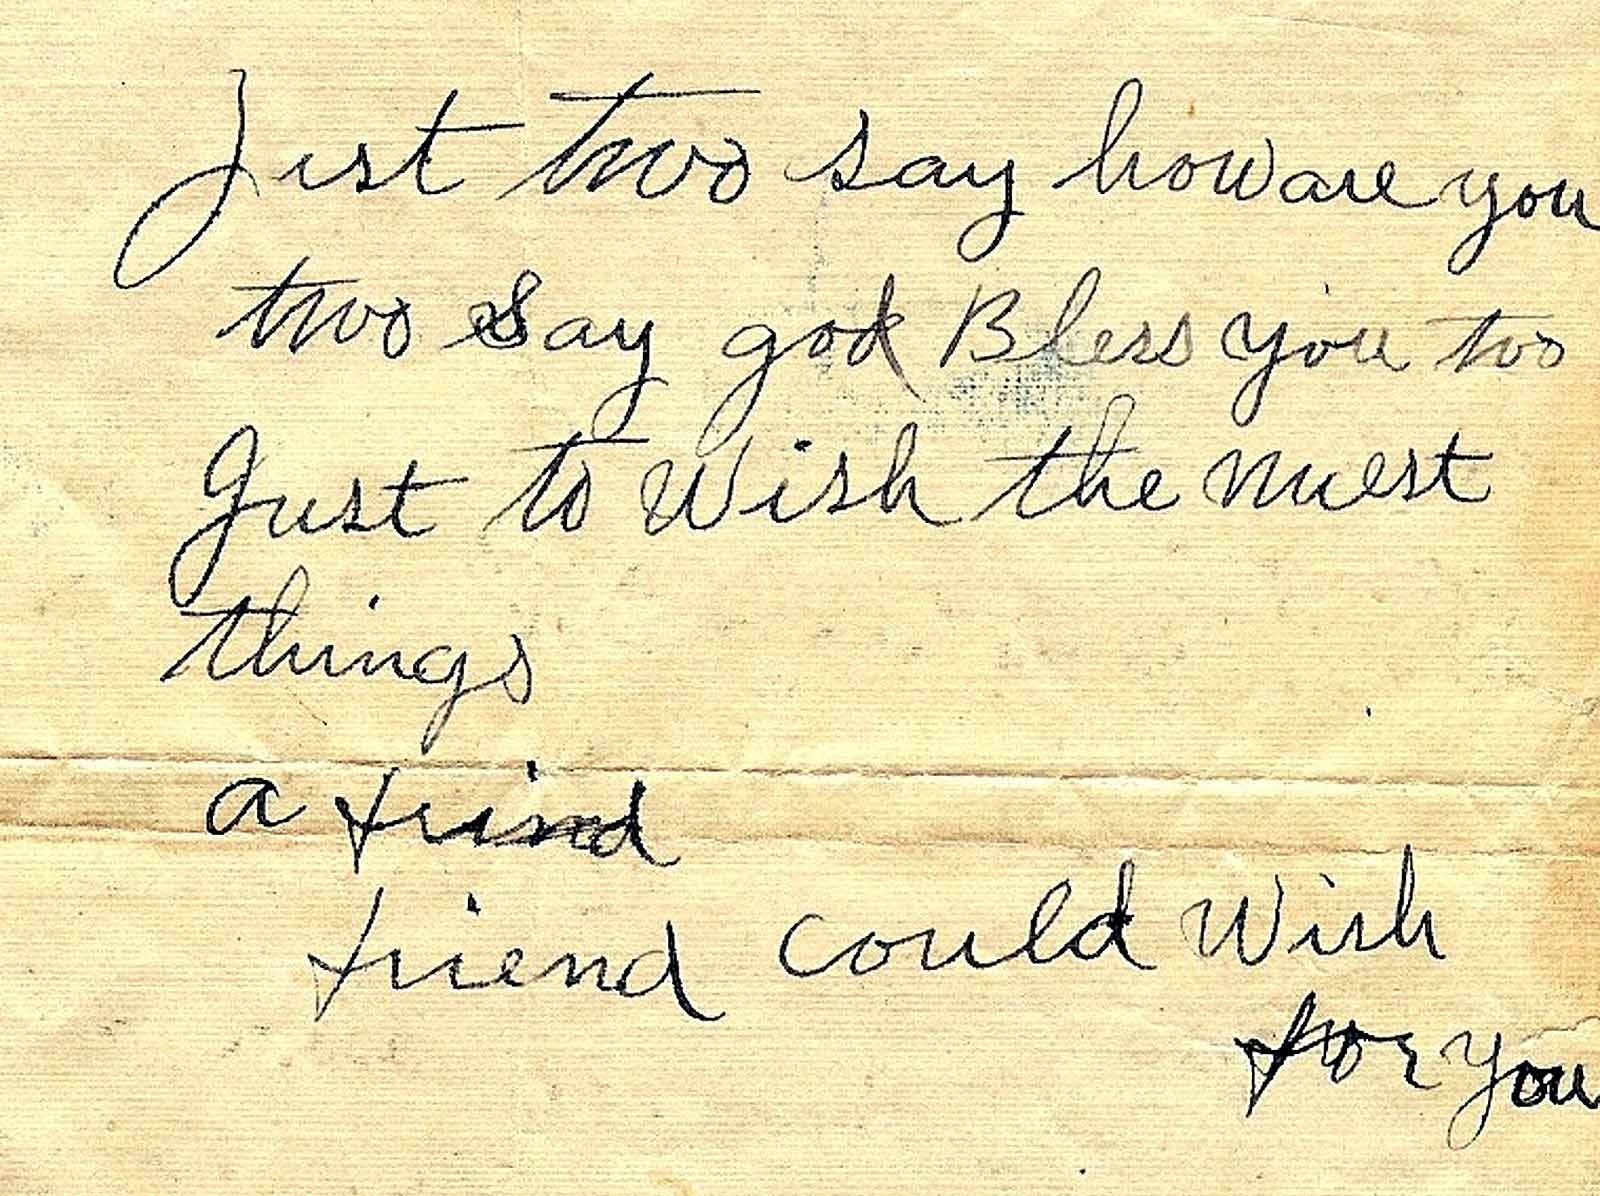 Just two say how are you
two say god Bless you too
Just to Wish the niest
things
a frind
friend could Wish
for you